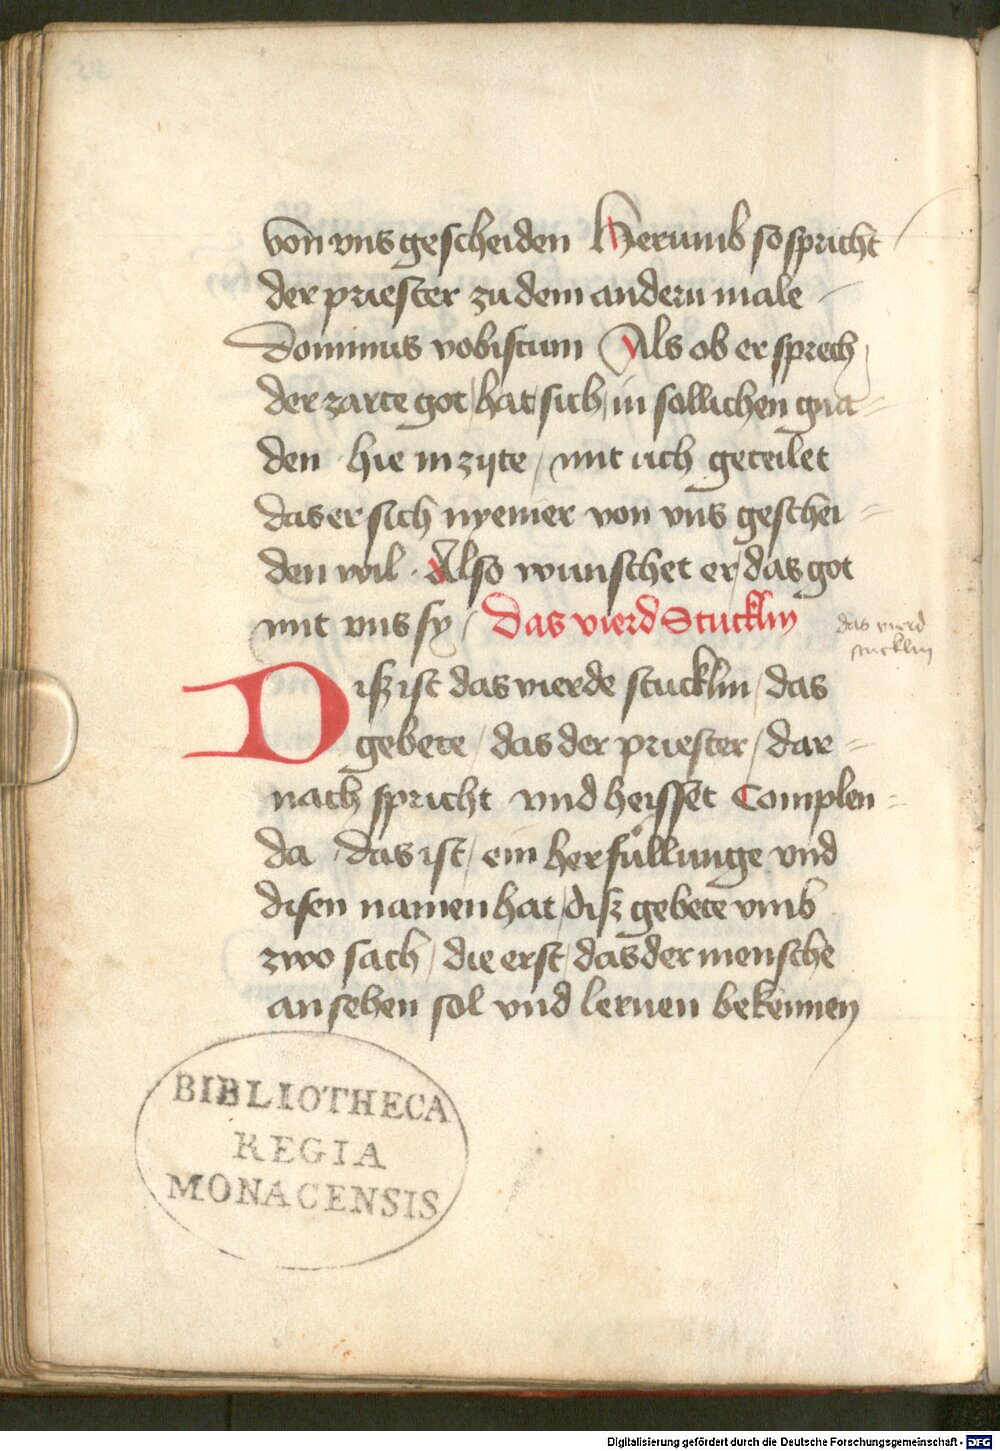 von vns gescheiden Herumb so spricht /
der priester zu dem andern male -
Dominus vobiscum Als ob er sprech /
der zarte got / hat sich / in sollichen gna =
den hie in zijte / mit uch geteilet
das er sich nyemer von vns geschei =
den wil . Also wunschet er / das got
mit vns sy / Das vierd Stucklin
das vierd
stucklin
Disz ist das vierde stucklin / das
gebete / das der priester / dar =
nach spricht vnd heisset Complen =
da . das ist / ein herfüllunge vnd
disen namen hat / disz gebete vmb
zwo sach / die erst / das der mensche
an sehen sol vnd lernen bekennen
BIBLIOTHECA
REGIA
MONACENSIS
Digitalisierung gefördert durch die Deutsche Forschungsgemeinschaft - DFG